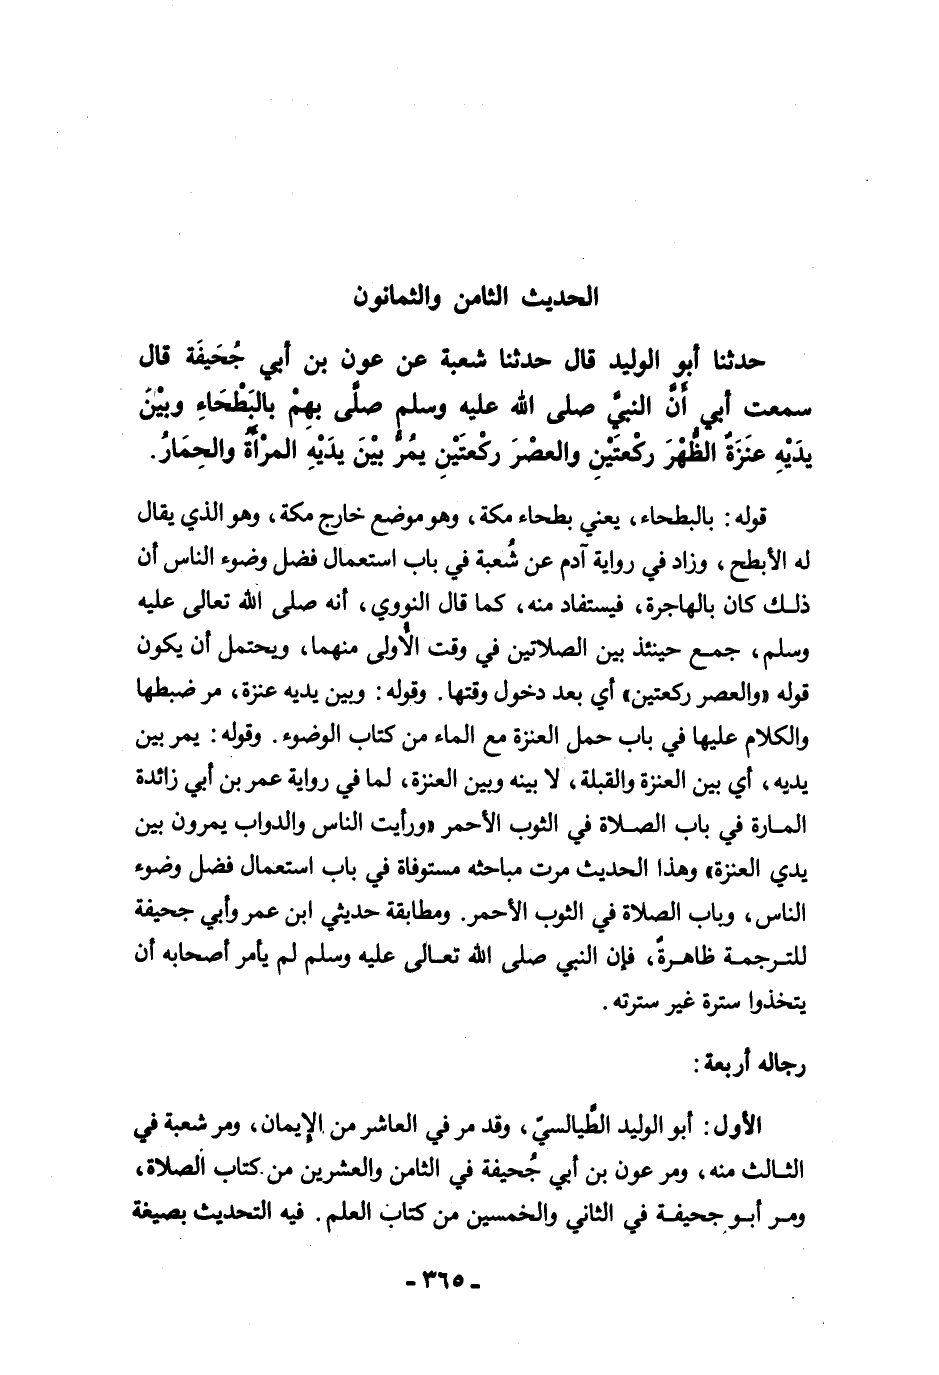 الحديث الثامن والثمانون
حدثنا أبو الوليد قال حدثنا شعبة عن عون بن أبي جُحَيفَة قال
سمعت أبي أَنَّ النبيَّ صلى الله عليه وسلم صلَّى بهِمْ بالبَطْحَاءِ وبيْنَ
يدَيْهِ عنَزَةٌ الظُّهْرَ ركْعتَيْنِ والعصْرَ ركْعتَيْنِ يمُرُّ بيْنَ يديْهِ المرْأةُ والحِمَارُ.
قوله: بالبطحاء، يعني بطحاء مكة، وهو موضع خارج مكة، وهو الذي يقال
له الأبطح، وزاد في رواية آدم عن شُعبة في باب استعمال فضل وضوء الناس أن
ذلك كان بالهاجرة، فيستفاد منه، كما قال النووي، أنه صلى الله تعالى عليه
وسلم، جمع حينئذ بين الصلاتين في وقت الأُولى منهما، ويحتمل أن يكون
قوله «والعصر ركعتين» أي بعد دخول وقتها. وقوله: وبين يديه عنزة، مر ضبطها
والكلام عليها في باب حمل العنزة مع الماء من كتاب الوضوء. وقوله: يمر بين
يديه، أي بين العنزة والقبلة، لا بينه وبين العنزة، لما في رواية عمر بن أبي زائدة
المارة في باب الصلاة في الثوب الأحمر «ورأيت الناس والدواب يمرون بين
يدي العنزة» وهذا الحديث مرت مباحثه مستوفاة في باب استعمال فضل وضوء
الناس، وباب الصلاة في الثوب الأحمر. ومطابقة حديثي ابن عمر وأبي جحيفة
للترجمة ظاهرةٌ، فإن النبي صلى الله تعالى عليه وسلم لم يأمر أصحابه أن
يتخذوا سترة غير سترته.
رجاله أربعة:
الأول: أبو الوليد الطَّيالسيّ، وقد مر في العاشر من الإِيمان، ومر شعبة في
الثالث منه، ومر عون بن أبي جُحيفة في الثامن والعشرين من كتاب الصلاة،
ومر أبو جحيفة في الثاني والخمسين من كتاب العلم. فيه التحديث بصيغة
- ٣٦٥ -